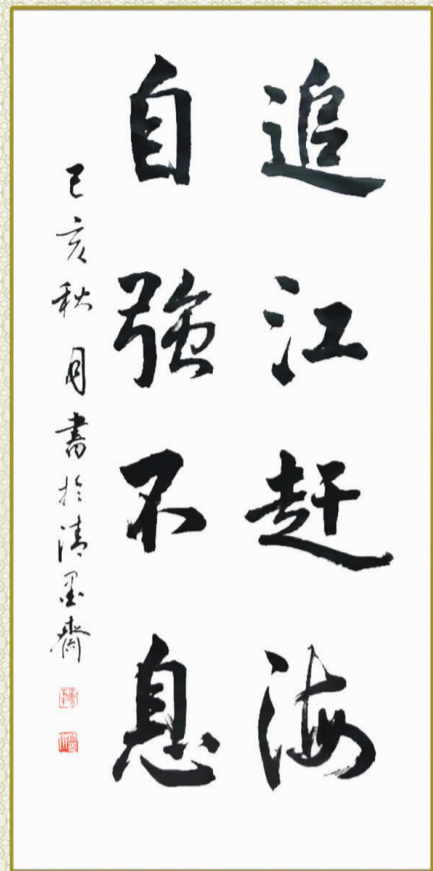 追江赶海
自強不息
己亥秋月書於清墨齋